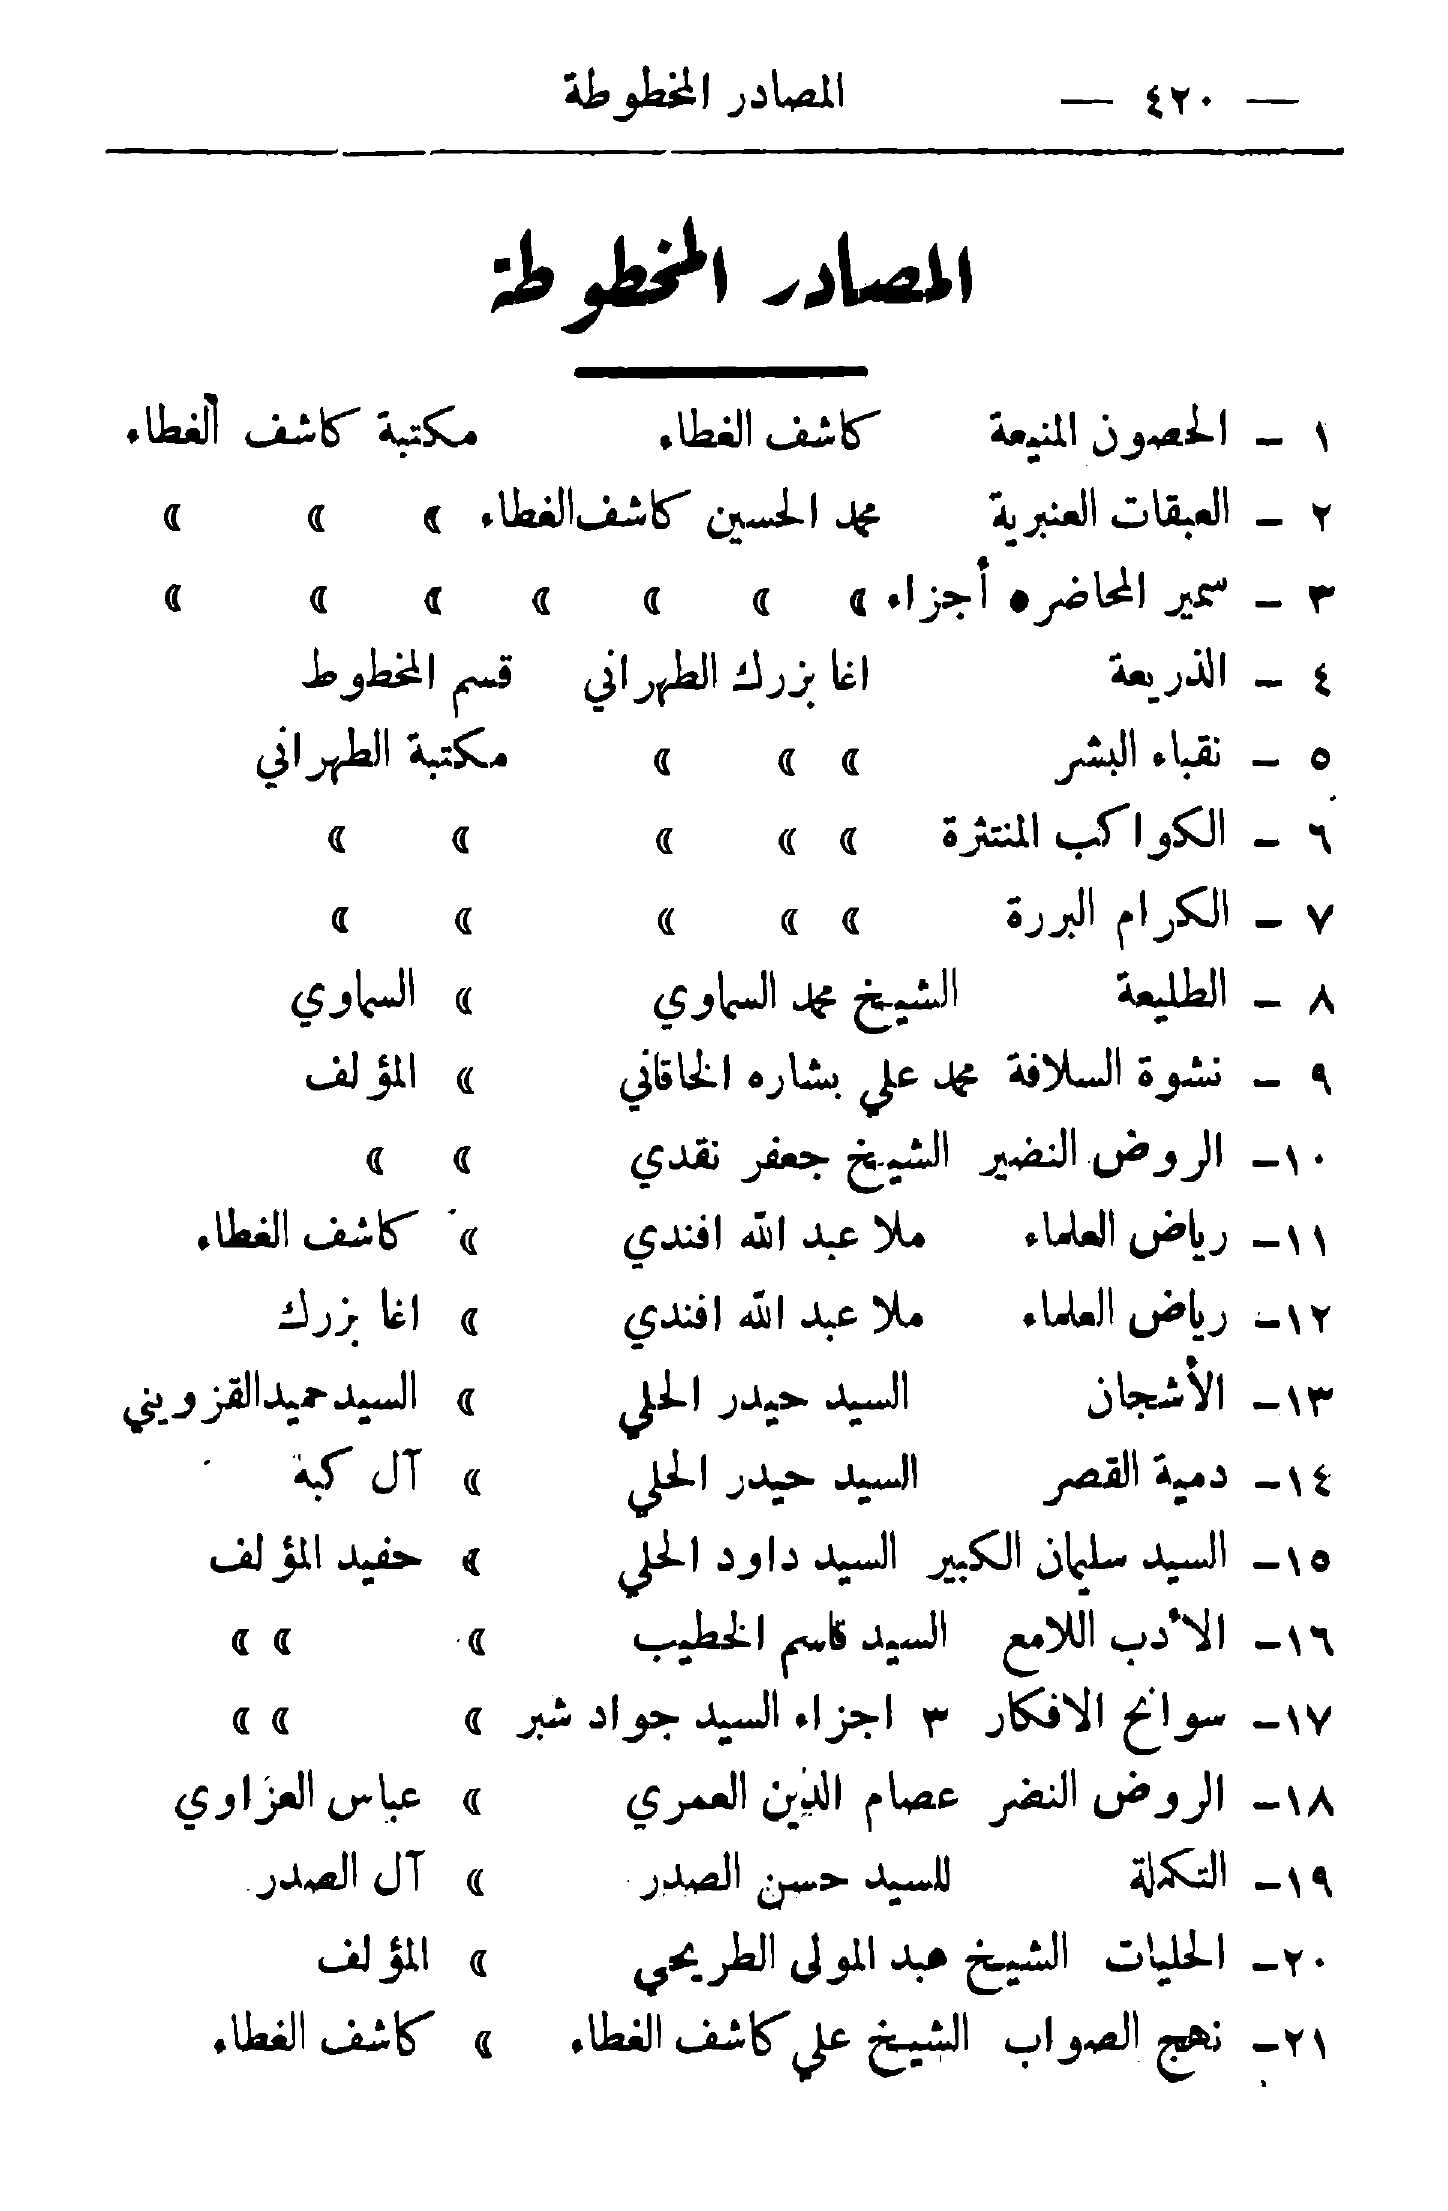 — ٤٢٠ — المصادر المخطوطة
المصادر المخطوطة
١ – الحصون المنيعة كاشف الغطاء مكتبة كاشف ألغطاء
٢ – العبقات العنبرية محمد الحسين كاشف الغطاء » » »
٣ – سمير المحاضر ٥ أجزاء » » » » » » »
٤ – الذريعة اغا بزرك الطهراني قسم المخطوط
٥ – نقباء البشر » » » مكتبة الطهراني
٦ – الكواكب المنتثرة » » » » »
٧ – الكرام البررة » » » » »
٨ – الطليعة الشيخ محمد السماوي » السماوي
٩ – نشوة السلافة محمد علي بشاره الخاقاني » المؤلف
١٠– الروض النضير الشيخ جعفر نقدي » »
١١– رياض العلماء ملا عبد الله افندي » كاشف الغطاء
١٢– رياض العلماء ملا عبد الله افندي » اغا بزرك
١٣– الأشجان السيد حيدر الحلي » السيد حميد القزويني
١٤– دمية القصر السيد حيدر الحلي » آل كبة
١٥– السيد سليمان الكبير السيد داود الحلي » حفيد المؤلف
١٦– الأدب اللامع السيد قاسم الخطيب » » »
١٧– سوانح الافكار ٣ اجزاء السيد جواد شبر » » »
١٨– الروض النضر عصام الدين العمري » عباس العزاوي
١٩– التكملة للسيد حسن الصدر » آل الصدر
٢٠– الحليات الشيخ عبد المولى الطريحي » المؤلف
٢١– نهج الصواب الشيخ علي كاشف الغطاء » كاشف الغطاء